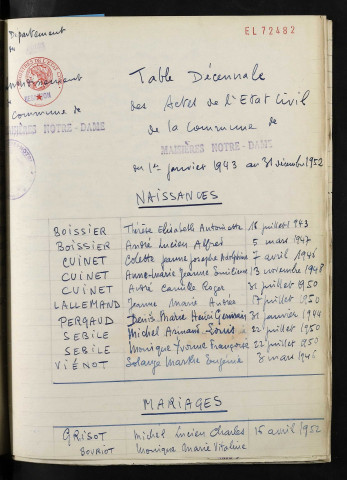 EL 72482
Département
Table Décennale
des Actes de l'Etat Civil
de la Commune de
Commune de
MAISIÈRES NOTRE-DAME
du 1er janvier 1943 au 31 décembre 1952
NAISSANCES
BOISSIER Thérèse Elisabeth Antoinette 18 juillet 1943
BOISSIER André Lucien Alfred 5 mars 1947
CUINET Colette Jeanne Josephe 7 avril 1946
CUINET Anne-Marie Jeanne Emilienne 13 novembre 1948
CUINET André Camille Roger 31 juillet 1950
LALLEMAND Jeanne Marie Andrée 17 juillet 1950
PERGAUD Denis Marie Henri Germain 31 janvier 1944
SEBILE Michel Armand Louis 22 juillet 1950
SEBILE Monique Yvonne Françoise 22 juillet 1950
VIÉNOT Solange Marthe Eugénie 8 mars 1946
MARIAGES
GRISOT Michel Lucien Charles 15 avril 1952
SOURIOT Monique Marie